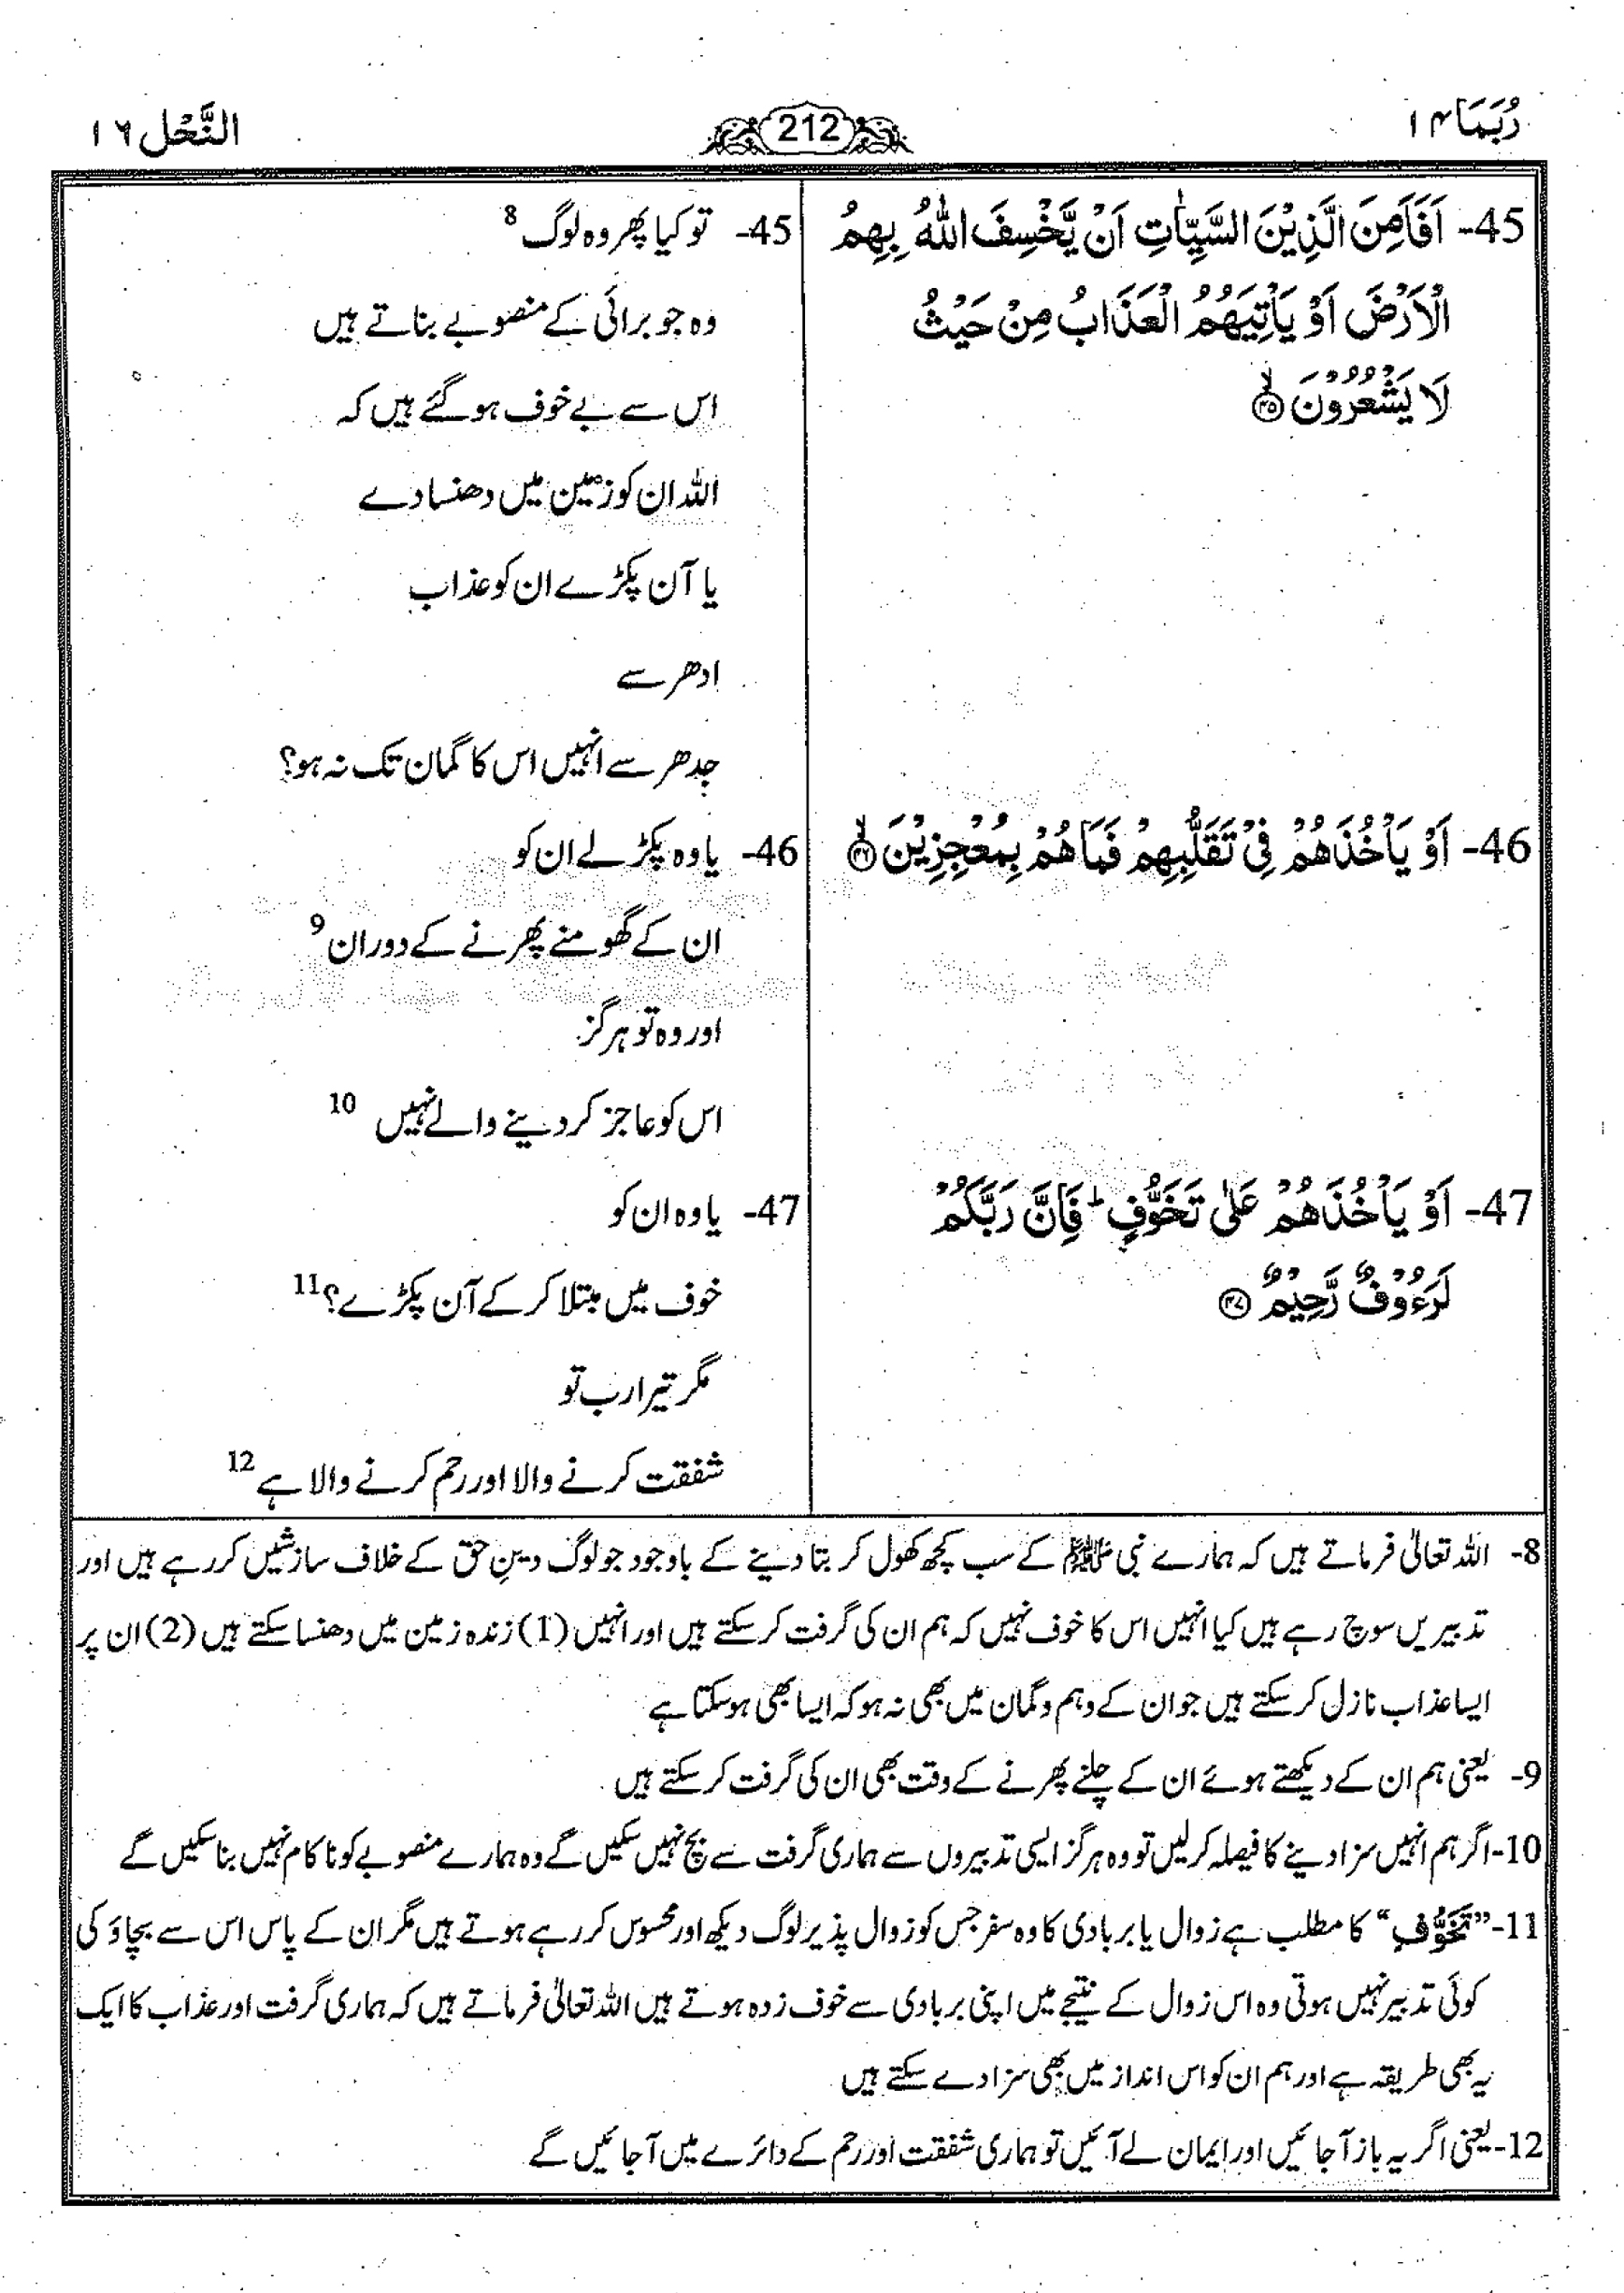 رُبَمَا ۱۴
212
النَّحْل ۱۶
45- اَفَاَمِنَ الَّذِيْنَ السَّيِّاٰتِ اَنْ يَّخْسِفَ اللّٰهُ بِهِمُ
الْاَرْضَ اَوْ يَاْتِيَهُمُ الْعَذَابُ مِنْ حَيْثُ
لَا يَشْعُرُوْنَ ۙ﴿۴۵﴾
45- تو کیا پھر وہ لوگ 8
وہ جو برائی کے منصوبے بناتے ہیں
اس سے بے خوف ہو گئے ہیں کہ
اللہ ان کو زمین میں دھنسا دے
یا آن پکڑے ان کو عذاب
ادھر سے
جدھر سے انہیں اس کا گمان تک نہ ہو؟
46- اَوْ يَاْخُذَهُمْ فِيْ تَقَلُّبِهِمْ فَمَا هُمْ بِمُعْجِزِيْنَ ۙ﴿۴۶﴾
46- یا وہ پکڑ لے ان کو
ان کے گھومنے پھرنے کے دوران 9
اور وہ تو ہرگز
اس کو عاجز کر دینے والے نہیں 10
47- اَوْ يَاْخُذَهُمْ عَلٰى تَخَوُّفٍ ؕ فَاِنَّ رَبَّكُمْ
لَرَءُوْفٌ رَّحِيْمٌ ﴿۴۷﴾
47- یا وہ ان کو
خوف میں مبتلا کر کے آن پکڑے؟ 11
مگر تیرا رب تو
شفقت کرنے والا اور رحم کرنے والا ہے 12
8- اللہ تعالیٰ فرماتے ہیں کہ ہمارے نبی ﷺ کے سب کچھ کھول کر بتا دینے کے باوجود جو لوگ دینِ حق کے خلاف سازشیں کر رہے ہیں اور
تدبیریں سوچ رہے ہیں کیا انہیں اس کا خوف نہیں کہ ہم ان کی گرفت کر سکتے ہیں اور انہیں (1) زندہ زمین میں دھنسا سکتے ہیں (2) ان پر
ایسا عذاب نازل کر سکتے ہیں جو ان کے وہم و گمان میں بھی نہ ہو کہ ایسا بھی ہو سکتا ہے
9- یعنی ہم ان کے دیکھتے ہوئے ان کے چلنے پھرنے کے وقت بھی ان کی گرفت کر سکتے ہیں
10- اگر ہم انہیں سزا دینے کا فیصلہ کر لیں تو وہ ہرگز ایسی تدبیروں سے ہماری گرفت سے بچ نہیں سکیں گے وہ ہمارے منصوبے کو ناکام نہیں بنا سکیں گے
11- ”تَخَوُّفٍ“ کا مطلب ہے زوال یا بربادی کا وہ سفر جس کو زوال پذیر لوگ دیکھ اور محسوس کر رہے ہوتے ہیں مگر ان کے پاس اس سے بچاؤ کی
کوئی تدبیر نہیں ہوتی وہ اس زوال کے نتیجے میں اپنی بربادی سے خوف زدہ ہوتے ہیں اللہ تعالیٰ فرماتے ہیں کہ ہماری گرفت اور عذاب کا ایک
یہ بھی طریقہ ہے اور ہم ان کو اس انداز میں بھی سزا دے سکتے ہیں
12- یعنی اگر یہ باز آ جائیں اور ایمان لے آئیں تو ہماری شفقت اور رحم کے دائرے میں آ جائیں گے